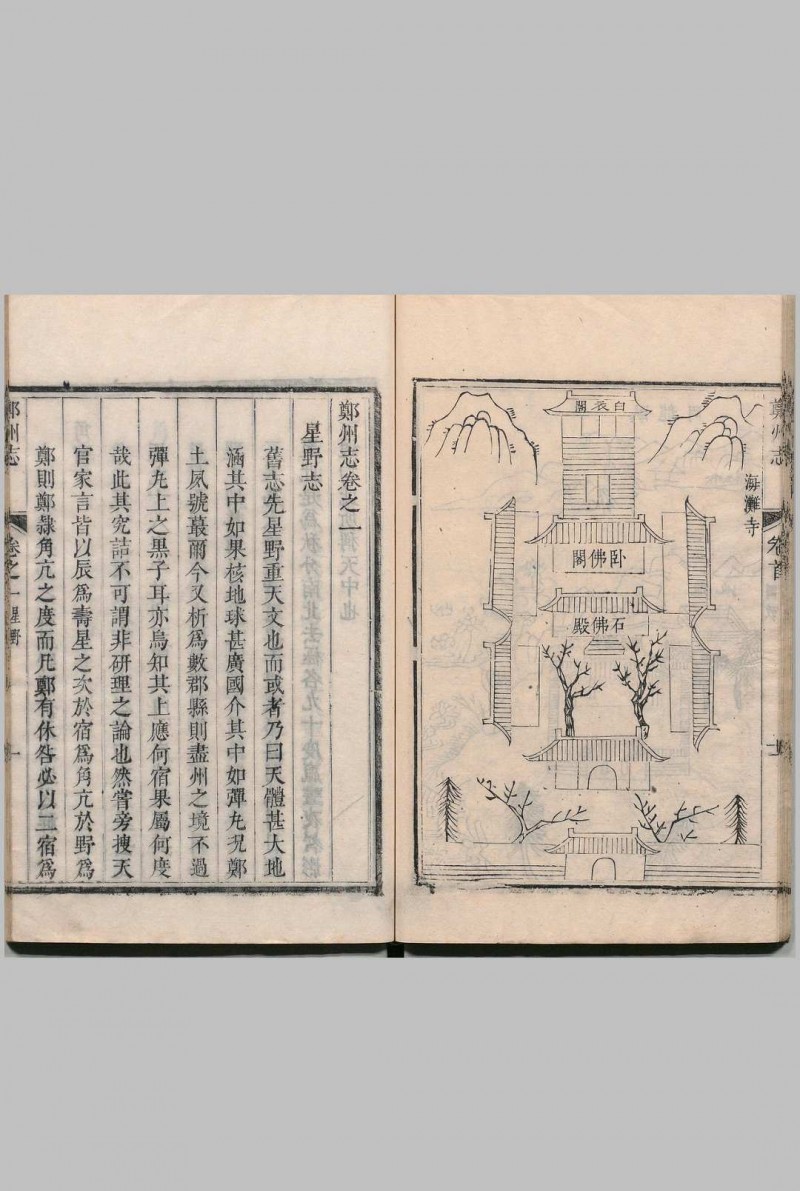 鄭州志
卷首
海灘寺
白衣閣
卧佛閣
石佛殿
鄭州志卷之一
星野志
舊志先星野重天文也而或者乃曰天體甚大地
涵其中如果核地球甚廣國介其中如彈丸况鄭
土夙號蕞爾今又析爲數郡縣則盡州之境不過
彈丸上之黒子耳亦烏知其上應何宿果屬何度
哉此其究詰不可謂非研理之論也然嘗旁搜天
官家言皆以辰爲壽星之次於宿爲角亢於野爲
鄭則鄭隸角亢之度而凡鄭有休咎必以二宿爲
鄭州志
卷之一星野
一